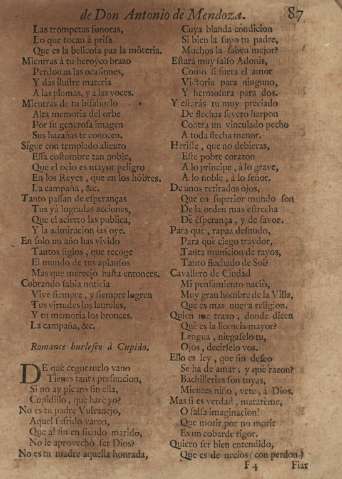 de Don Antonio de Mendoza. 87
Las trompetas sonoras,
Lo que tocan à prisa
Que es la belicosa paz la
Mientras à tu heroyco brazo
Perdonan las ocasiones,
Y das ilustre materia
A las plumas, y a las voces.
Mientras de tu bisabuelo
Alta memoria del orbe
Por su generosa imagen
Sus hazañas te conocen.
Sigue con templado aliento
Essa costumbre tan noble,
Que el ocio es mayor peligro
En los Reyes, que en los hōbres.
La campaña, &c.
Tanto passan de esperanças
Tus yà logradas acciones,
Que el acierto las publica,
Y la admiracion las oye.
En solo un año has vivido
Tantos siglos, que recoge
El mundo de tus aplausos
Mas que merecio hasta entonces.
Cobrando fabia noticia
Vive siempre, y siempre logren
Tus virtudes los laureles,
Y tu memoria los bronces.
La campaña, &c.
Romance burlesco à Cupido.
DE què ceguezuelo vano
Tienes tanta presuncion,
Si no ay picaro sin ella,
Cupidillo, què harè yo?
No es tu padre Vulcanejo,
Aquel sufrido varon,
Que al fin en siendo marido,
No le aprovechò ser Dios?
No es tu madre aquella honrada,
Cuya blanda condicion
Si bien la supo tu padre,
Muchos la saben mejor?
Estarà muy falso Adonis,
Como si fuera el amor
Victoria para ninguno,
Y hermosura para dos.
Y estaràs tu muy preciado
De flechas severo harpon
Contra un vinculado pecho
A toda flecha menor.
Heriste, que no debieras,
Este pobre corazon
A lo principe, à lo grave,
A lo noble, à lo señor.
De unos retirados ojos,
Que en superior mundo son
De la orden mas estrecha
De esperança, y de favor.
Para què, rapaz desnudo,
Para què ciego traydor,
Tanta municion de rayos,
Tanto flechado de Sol?
Cavallero de Ciudad
Mi pensamiento naciò,
Muy gran hombre de la Villa,
Que es mas nueva religion.
Quien me traxo, donde dicen
Què es la licencia mayor?
Lengua, niegaselo tu,
Ojos, decirselo vos.
Esso es ley, que sin deseo
Se ha de amar, y què razon?
Bachillerias son tuyas,
Mientes niño, vete, à Dios.
Mas si es verdad, matarème,
O falsa imaginacion!
Que morir por no morir
Es un cobarde rigor.
Quiero ser bien entendido,
Que es de necios (con perdon)
F 4 Fiar